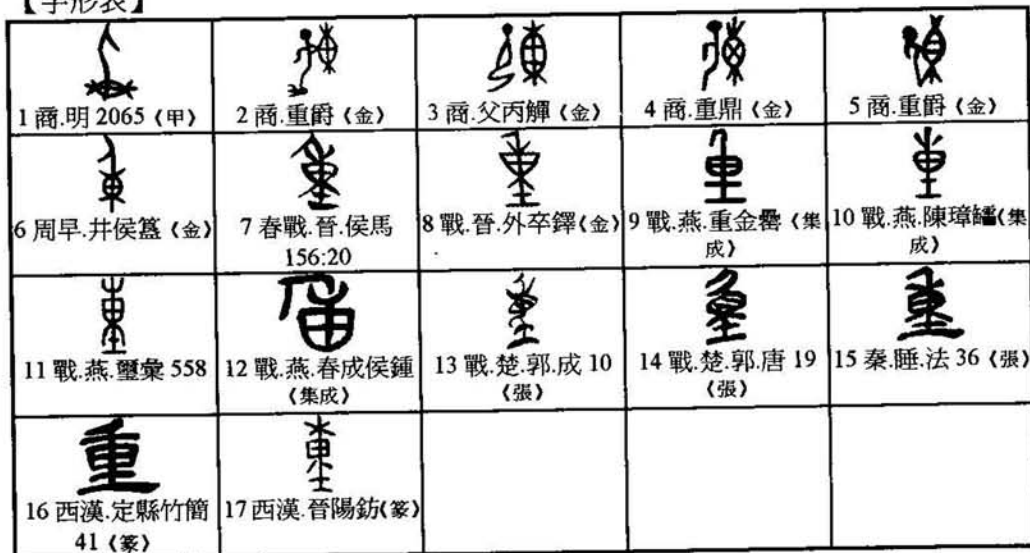 【字形表】
1 商.明 2065《甲》
2 商.重爵《金》
3 商.父丙觶《金》
4 商.重鼎《金》
5 商.重爵《金》
6 周早.井侯簋《金》
7 春戰.晉.侯馬
156:20
8 戰.晉.外卒鐸《金》
9 戰.燕.重金罍《集
成》
10 戰.燕.陳璋𦉢《集
成》
11 戰.燕.璽彙 558
12 戰.燕.春成侯鍾
《集成》
13 戰.楚.郭.成 10
《張》
14 戰.楚.郭.唐 19
《張》
15 秦.睡.法 36《張》
16 西漢.定縣竹簡
41《篆》
17 西漢.晉陽鈁《篆》